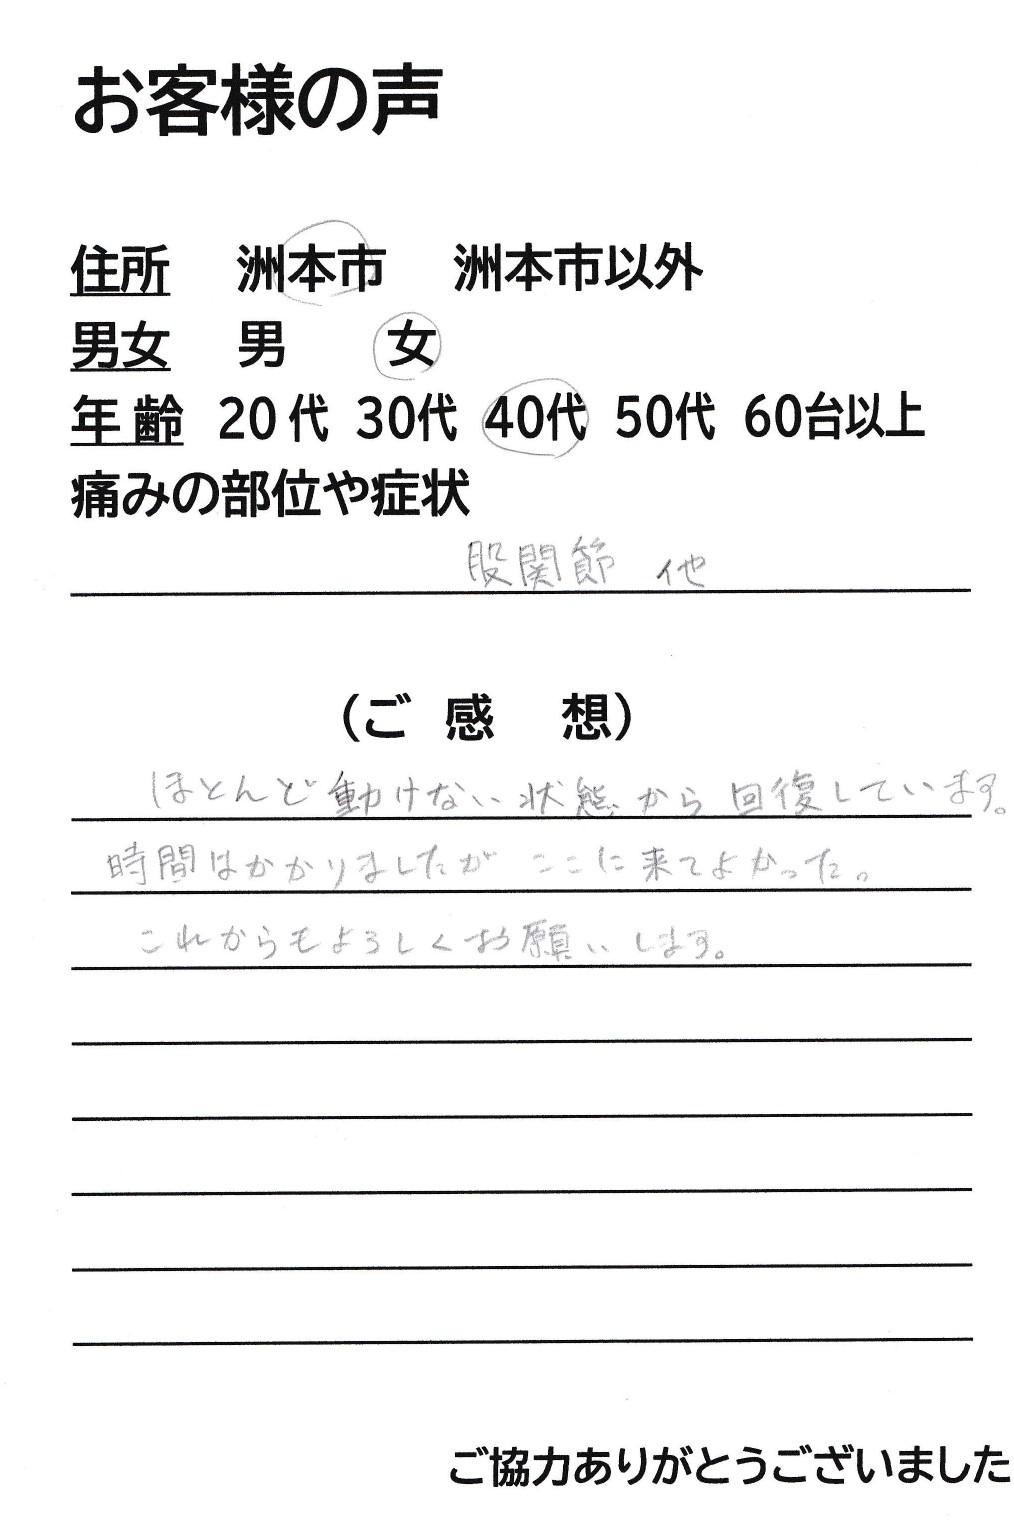 お客様の声
住所 洲本市 洲本市以外
男女 男 女
年齢 20代 30代 40代 50代 60台以上
痛みの部位や症状
股関節 他
（ご感想）
ほとんど動けない状態から回復しています。
時間はかかりましたが ここに来てよかった。
これからもよろしくお願いします。
ご協力ありがとうございました